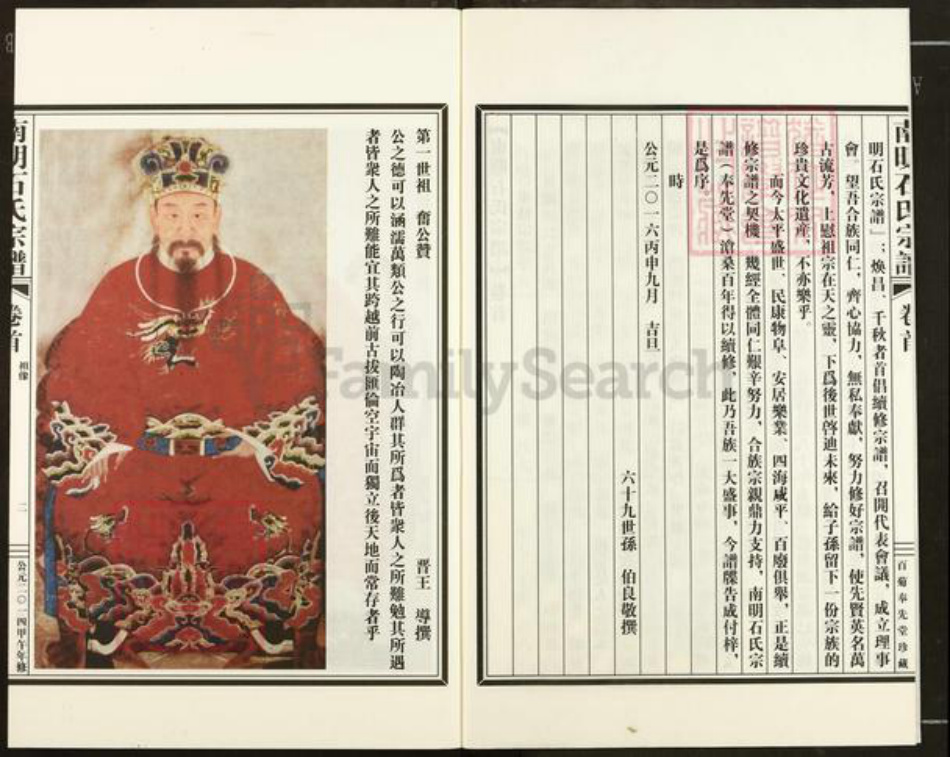 南明石氏宗譜
卷首
百菊奉先堂珍藏
明石氏宗譜」；煥昌、千秋者首倡續修宗譜，召開代表會議，成立理事
會。望吾合族同仁，齊心協力，無私奉獻，努力修好宗譜，使先賢英名萬
古流芳，上慰祖宗在天之靈，下爲後世啓迪未來，給子孫留下一份宗族的
珍貴文化遺産，不亦樂乎。
而今太平盛世、民康物阜、安居樂業、四海咸平、百廢俱舉，正是續
修宗譜之契機，幾經全體同仁艱辛努力，合族宗親鼎力支持，南明石氏宗
譜（奉先堂）滄桑百年得以續修，此乃吾族一大盛事，今譜牒告成付梓，
是爲序。
時
公元二〇一六丙申九月　吉旦
六十九世孫　伯良敬撰
第一世祖　奮公贊　晋王　導撰
公之德可以涵濡萬類公之行可以陶冶人群其所爲者皆衆人之所難勉其所遇
者皆衆人之所難能宜其跨越前古拔匯倫空宇宙而獨立後天地而常存者乎
南明石氏宗譜
卷首
祖像
二
公元二〇一四甲午年修
FamilySearch